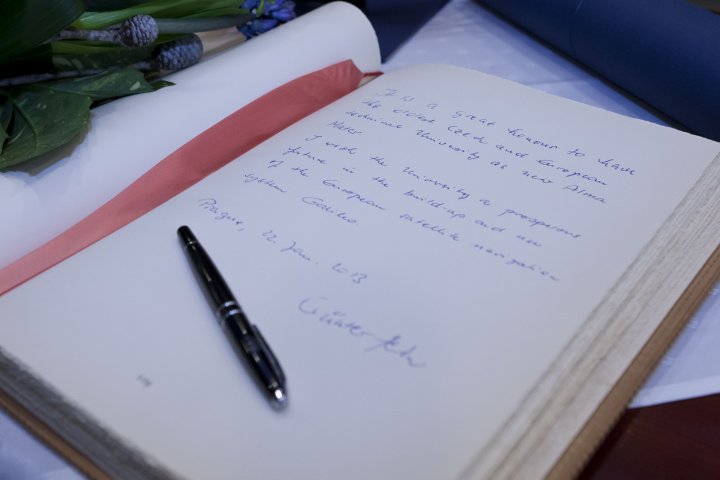 It is a great honour to have
the oldest Czech and European
technical University as new Alma
Mater.
I wish the University a prosperous
future in the build-up and use
of the European satellite navigation
system Galileo.
Prague, 22. Jan. 2013
Günter